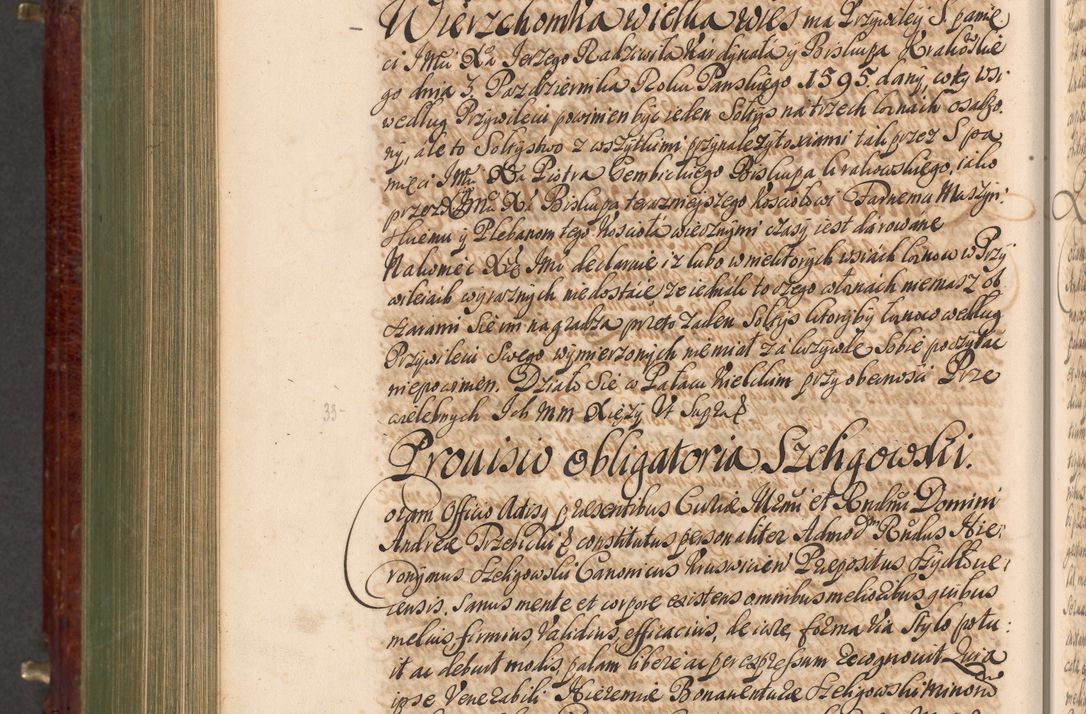 Wierzchomka wielka wies ma Przywiley S. pamie
ci JMci Xa Jerzego Radziwiła Kardynała y Biskupa Krakowskie
go dnia 3. Pazdziernika Roku Panskiego 1595. dany, w tey wsi
według Przywileiu powinien byc ieden Sołtys na trzech łanach osadzo
ny, ale to Sołtystwo z wszytkimi przynalezytosciami tak przez S. pa
mięci JMci Xa Piotra Gembickiego Biskupa Krakowskiego, iako
przez JMci Xa Biskupa teraznieyszego Kosciołowi Farnemu Muszyn
skiemu y Plebanom tego Koscioła wiecznymi czasy iest darowane
Nakoniec Xże JMć declaruie iz lubo w niektorych wsiach łanow w Przy
wileiach wyraznych niedostaie, ze iednak to czego w łanach niemasz ob
szarami sie im nagradza, przeto zaden Sołtys ktoryby łanow według
Przywileiu swego wymierzonych nie miał za krzywdę sobie poczytac
niepowinien. Działo sie w Pałacu Kieleckim przy obecnosci Prze
wielebnych Ich MM Xięży Vt Supra
33-
Prouisio obligatoria Szeligowski.
Coram Officio Actisq presentibus Curiæ Illmi et Rndmi Domini
Andreæ Trzebicki constitutus personaliter Admodm Rndus Hie:
ronymus Szeligowski Canonicus Kruswicien Præpositus Szydłoue:
censis. Sanus mente et corpore existens omnibus melioribus quibus
melius firmius, validius, efficacius, de iure, forma via stylo potu:
it ac debuit modis, palam libere ac per expressum recognouit Quia
ipse Venerabili Hieremiæ Bonauenturæ Szeligowski minoru